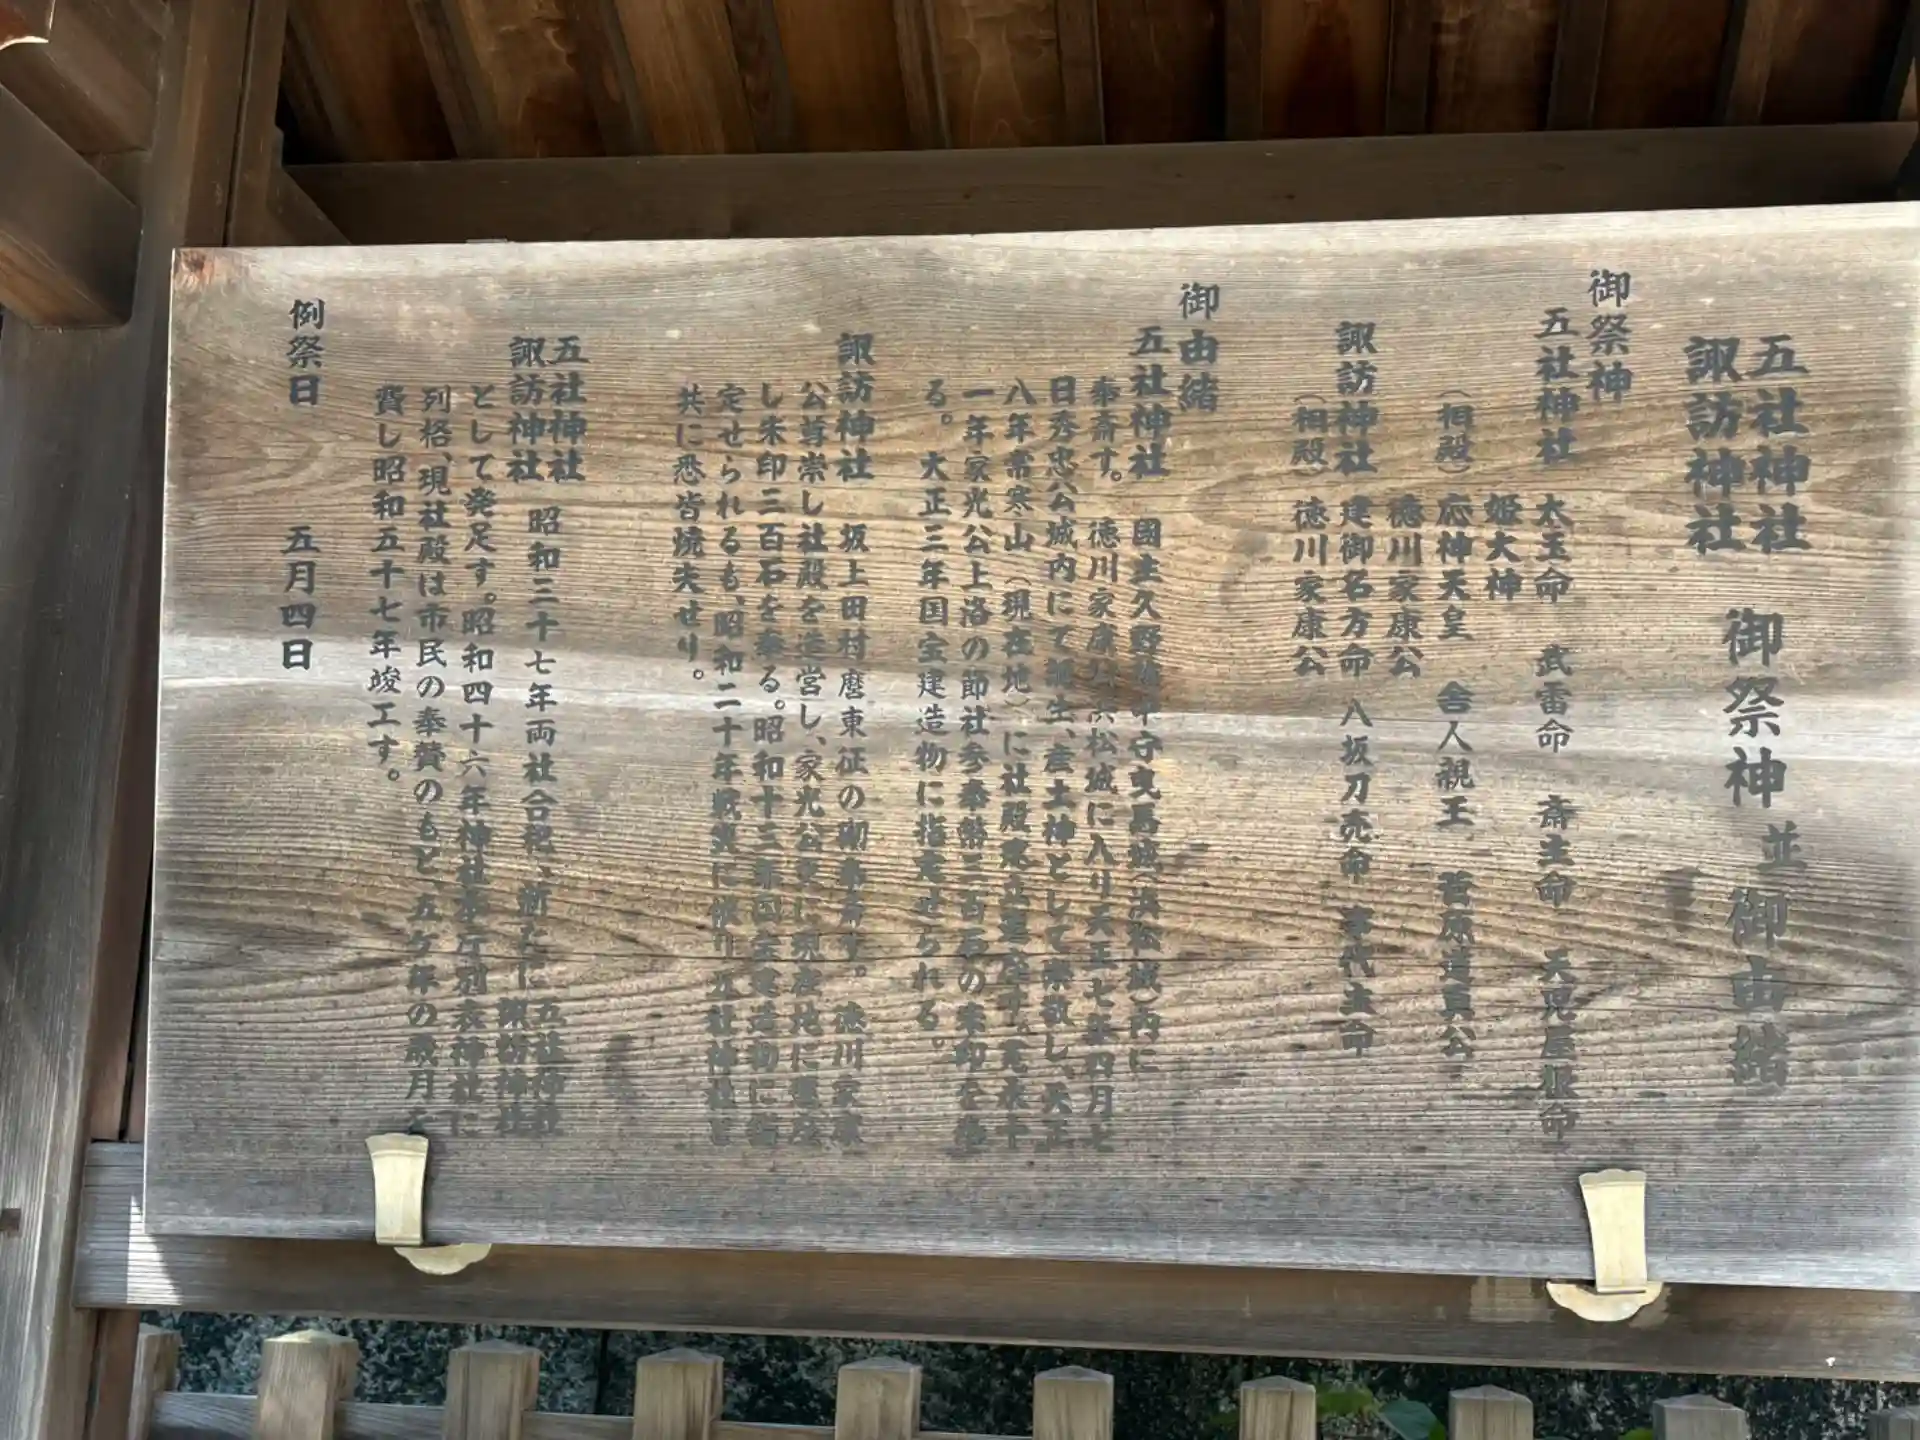 五社神社
諏訪神社
御祭神 並 御由緒
御祭神
五社神社 太玉命 武雷命 斎主命 天児屋根命
姫大神
(相殿) 応神天皇 舎人親王 菅原道真公
徳川家康公
諏訪神社 建御名方命 八坂刀売命 事代主命
(相殿) 徳川家康公
御由緒
五社神社 國主久野 守曳馬城(浜松城)内に
奉斎す。徳川家康公浜松城に入り天正七年四月七
日秀忠公城内にて誕生、産土神として崇敬し、天正
八年常寒山(現在地)に社殿建立遷座す。寛永十
一年家光公上洛の節社参奉幣三百石の朱印を奉
る。大正三年国宝建造物に指定せられる。
諏訪神社 坂上田村麿東征の砌奉斎す。徳川家康
公尊崇し社殿を造営し、家光公更に現在地に遷座
し朱印三百石を奉る。昭和十三年国宝建造物に指
定せられるも、昭和二十年戦災に依り五社神社と
共に悉皆焼失せり。
五社神社
諏訪神社
昭和三十七年両社合祀、新たに
五社神社
諏訪神社
として発足す。昭和四十六年神社本庁別表神社に
列格、現社殿は市民の奉賛のもと、五ヶ年の歳月を
費し昭和五十七年竣工す。
例祭日 五月四日